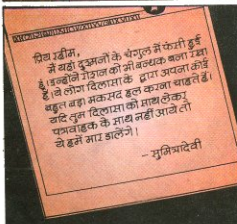 प्रिय रहीम,
मैं यहां दुश्मनों के चंगुल में फंसी हुई
हूं। इन्होंने रोशन को भी बन्धक बना रखा
है। ये लोग दिलासा के द्वारा अपना कोई
बहुत बड़ा मकसद हल करना चाहते हैं।
यदि तुम दिलासा को साथ लेकर
पत्रवाहक के साथ नहीं आये तो
ये हमें मार डालेंगे।
- सुमित्रादेवी